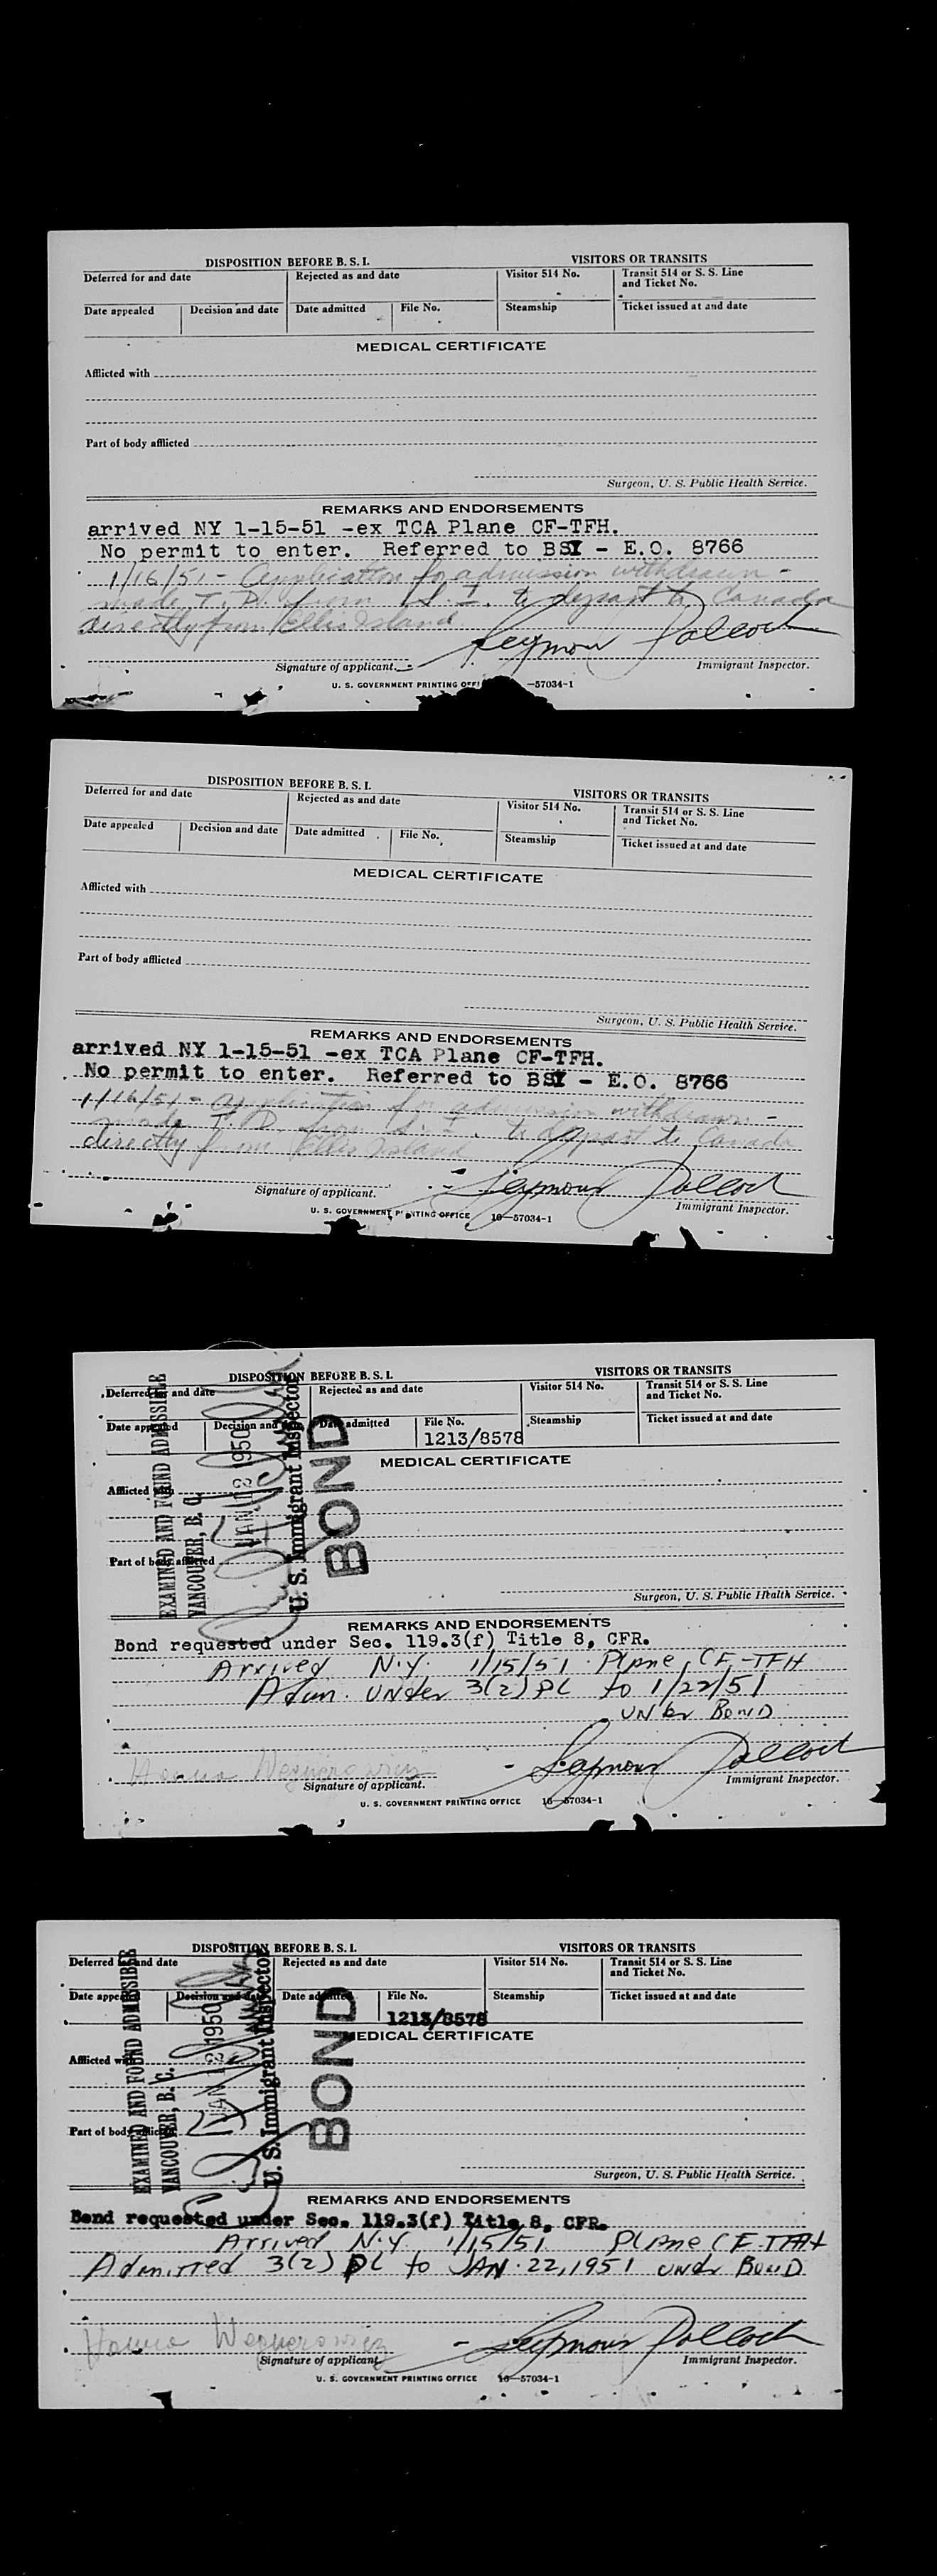 DISPOSITION BEFORE B. S. I.
VISITORS OR TRANSITS
Deferred for and date
Rejected as and date
Visitor 514 No.
Transit 514 or S. S. Line and Ticket No.
Date appealed
Decision and date
Date admitted
File No.
Steamship
Ticket issued at and date
MEDICAL CERTIFICATE
Afflicted with
Part of body afflicted
Surgeon, U. S. Public Health Service.
REMARKS AND ENDORSEMENTS
arrived NY 1-15-51 -ex TCA Plane CF-TFH.
No permit to enter. Referred to BSI - E.O. 8766
1/16/51 - Application for admission withdrawn -
made T. D. from S. I. to depart to Canada
directly from Ellis Island
Seymour Pollock
Signature of applicant.
Immigrant Inspector.
U. S. GOVERNMENT PRINTING OFFI -57034-1
DISPOSITION BEFORE B. S. I.
VISITORS OR TRANSITS
Deferred for and date
Rejected as and date
Visitor 514 No.
Transit 514 or S. S. Line and Ticket No.
Date appealed
Decision and date
Date admitted
File No.
Steamship
Ticket issued at and date
MEDICAL CERTIFICATE
Afflicted with
Part of body afflicted
Surgeon, U. S. Public Health Service.
REMARKS AND ENDORSEMENTS
arrived NY 1-15-51 -ex TCA Plane CF-TFH.
No permit to enter. Referred to BSI - E.O. 8766
1/16/51 - application for admission withdrawn -
made T. D. from S. I. to depart to Canada
directly from Ellis Island
Seymour Pollock
Signature of applicant.
Immigrant Inspector.
U. S. GOVERNMENT PRINTING OFFICE 16—57034-1
DISPOSITION BEFORE B. S. I.
VISITORS OR TRANSITS
Deferred for and date
Rejected as and date
Visitor 514 No.
Transit 514 or S. S. Line and Ticket No.
Date appealed
Decision and date
Date admitted
File No.
1213/8578
Steamship
Ticket issued at and date
EXAMINED AND FOUND ADMISSIBLE
VANCOUVER, B. C.
JAN 1950
U. S. Immigrant Inspector
BOND
MEDICAL CERTIFICATE
Afflicted with
Part of body afflicted
Surgeon, U. S. Public Health Service.
REMARKS AND ENDORSEMENTS
Bond requested under Sec. 119.3(f) Title 8, CFR.
Arrived N.Y. 1/15/51 Plane CF-TFH
Adm. UNder 3(2) PL to 1/22/51
UNder BonD
Seymour Pollock
Signature of applicant.
Immigrant Inspector.
U. S. GOVERNMENT PRINTING OFFICE 16—57034-1
DISPOSITION BEFORE B. S. I.
VISITORS OR TRANSITS
Deferred for and date
Rejected as and date
Visitor 514 No.
Transit 514 or S. S. Line and Ticket No.
Date appealed
Decision and date
Date admitted
File No.
1213/8578
Steamship
Ticket issued at and date
EXAMINED AND FOUND ADMISSIBLE
VANCOUVER, B. C.
JAN 1950
U. S. Immigrant Inspector
BOND
MEDICAL CERTIFICATE
Afflicted with
Part of body afflicted
Surgeon, U. S. Public Health Service.
REMARKS AND ENDORSEMENTS
Bond requested under Sec. 119.3(f) Title 8, CFR.
Arrived N.Y. 1/15/51 Plane CF-TFH
Admitted 3(2) PL to JAN. 22, 1951 under BonD
Seymour Pollock
Signature of applicant.
Immigrant Inspector.
U. S. GOVERNMENT PRINTING OFFICE 16—57034-1